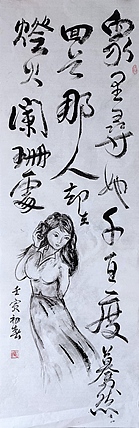 衆里尋他千百度驀然
回首那人却在
燈火闌珊處
壬寅初春